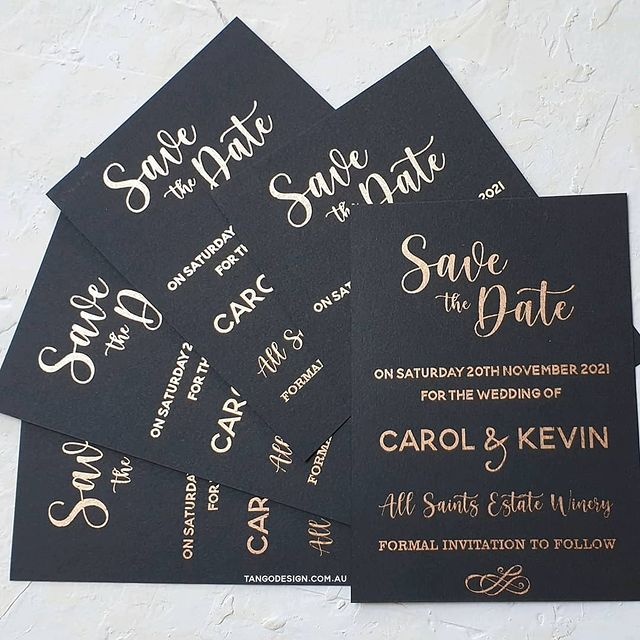 Save
the Date
ON SATURDAY 20TH NOVEMBER 2021
FOR THE WEDDING OF
CAROL & KEVIN
All Saints Estate Winery
FORMAL INVITATION TO FOLLOW
Save
the Date
2021
ON
All S
FORMAL
Save
the Date
ON SATURDAY
FOR TH
CAROL
Save
the D
ON SATURDAY 2
FOR TH
CAR
All
FORM
Sav
the
ON SATURDAY
FOR
CAR
All
TANGODESIGN.COM.AU